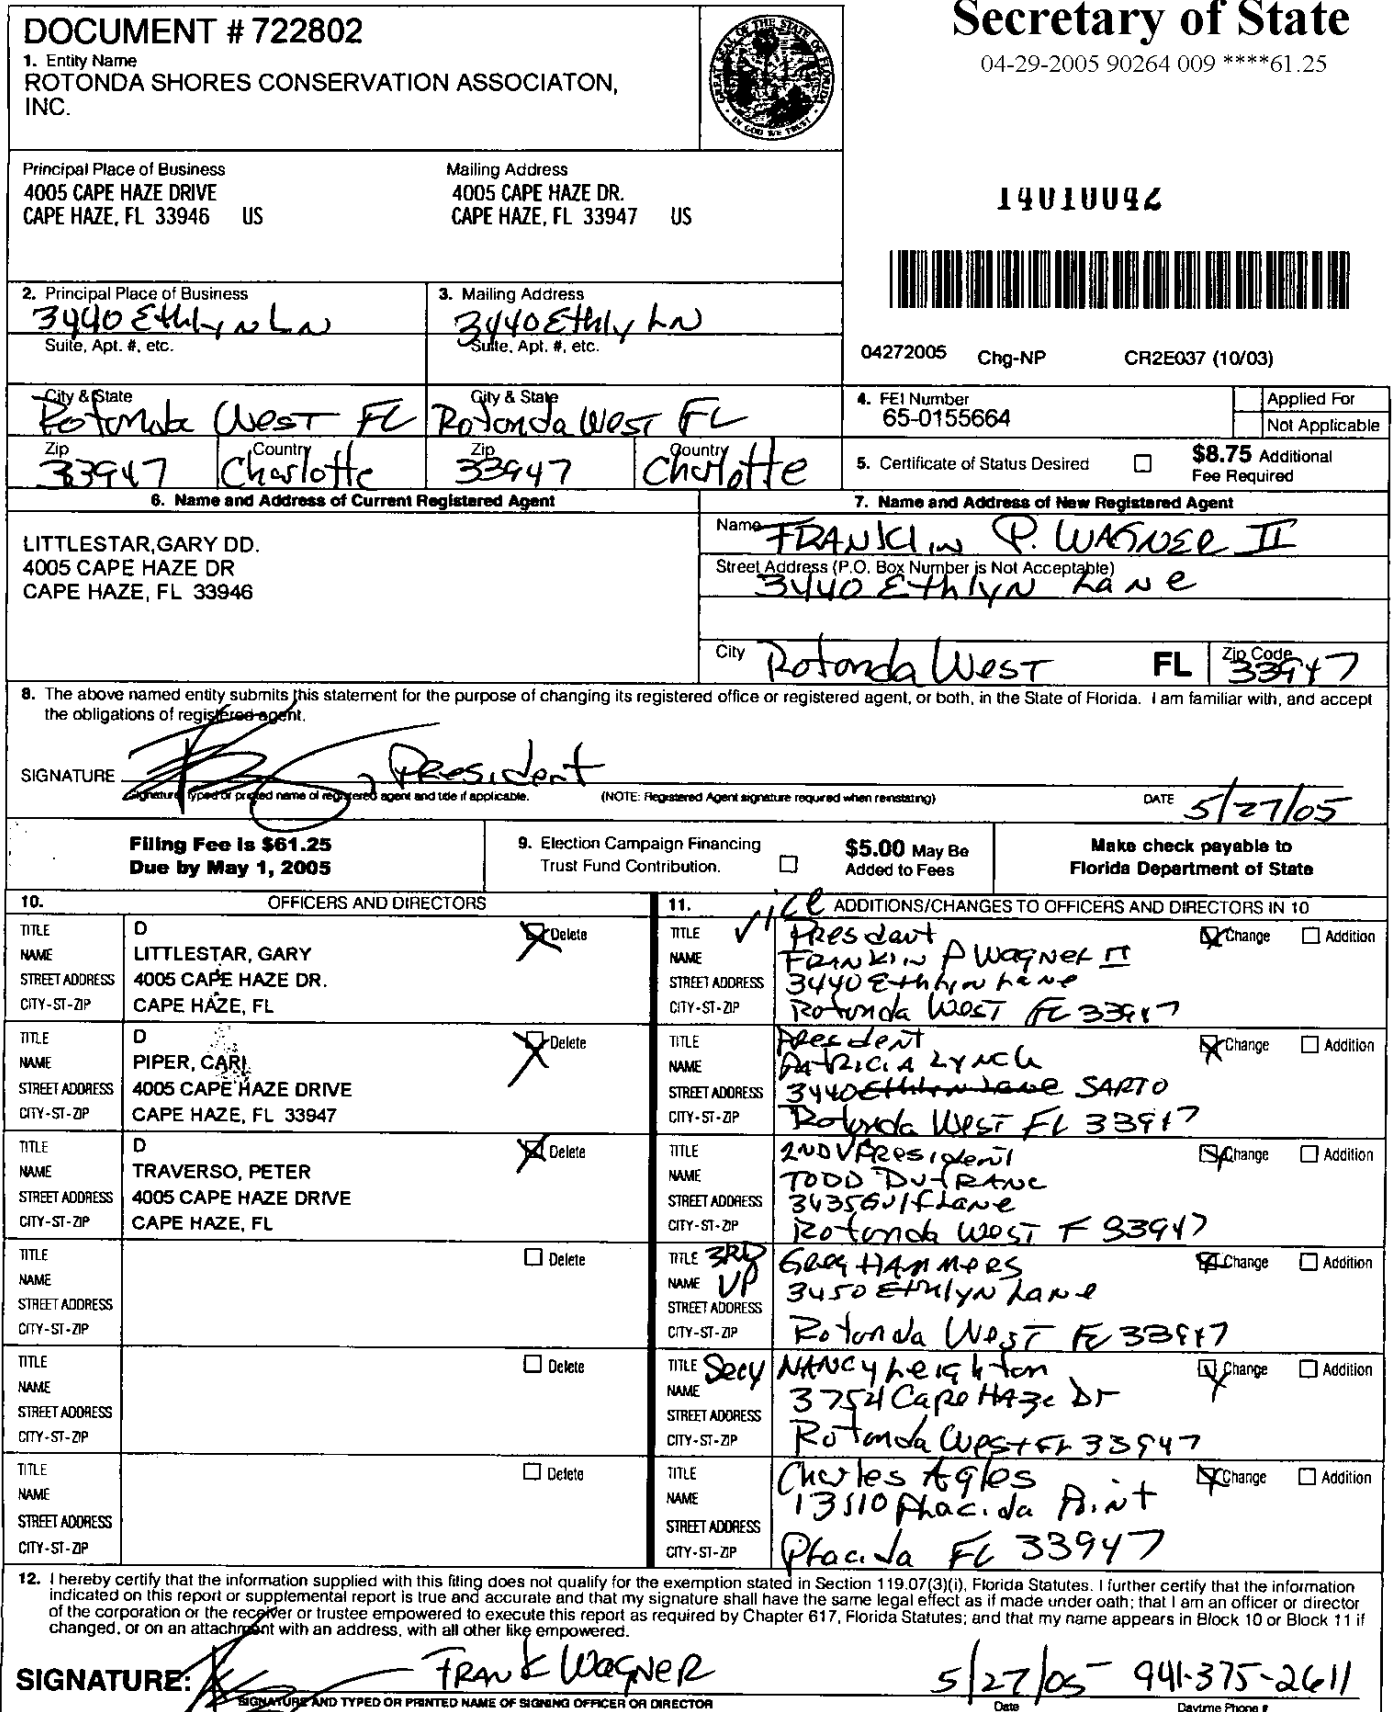 DOCUMENT # 722802
1. Entity Name
ROTONDA SHORES CONSERVATION ASSOCIATON,
INC.
Secretary of State
04-29-2005 90264 009 ****61.25
Principal Place of Business
4005 CAPE HAZE DRIVE
CAPE HAZE, FL 33946 US
Mailing Address
4005 CAPE HAZE DR.
CAPE HAZE, FL 33947 US
14010042
2. Principal Place of Business
3440 Ethlyn LN
Suite, Apt. #, etc.
3. Mailing Address
3440 Ethly LN
Suite, Apt. #, etc.
04272005 Chg-NP CR2E037 (10/03)
City & State
Rotonda West FL
City & State
Rotonda West FL
Zip
33947
Country
Charlotte
Zip
33947
Country
Charlotte
4. FEI Number
65-0155664
Applied For
Not Applicable
5. Certificate of Status Desired
$8.75 Additional
Fee Required
6. Name and Address of Current Registered Agent
LITTLESTAR,GARY DD.
4005 CAPE HAZE DR
CAPE HAZE, FL 33946
7. Name and Address of New Registered Agent
Name FRANKlin P. WAGNER II
Street Address (P.O. Box Number is Not Acceptable)
3440 Ethlyn Lane
City Rotonda West FL Zip Code 33947
8. The above named entity submits this statement for the purpose of changing its registered office or registered agent, or both, in the State of Florida. I am familiar with, and accept
the obligations of registered agent.
SIGNATURE , President
Signature, typed or printed name of registered agent and title if applicable. (NOTE: Registered Agent signature required when reinstating)
DATE 5/27/05
Filing Fee is $61.25
Due by May 1, 2005
9. Election Campaign Financing
Trust Fund Contribution.
$5.00 May Be
Added to Fees
Make check payable to
Florida Department of State
10. OFFICERS AND DIRECTORS
TITLE D Delete
NAME LITTLESTAR, GARY
STREET ADDRESS 4005 CAPE HAZE DR.
CITY-ST-ZIP CAPE HAZE, FL
TITLE D Delete
NAME PIPER, CARL
STREET ADDRESS 4005 CAPE HAZE DRIVE
CITY-ST-ZIP CAPE HAZE, FL 33947
TITLE D Delete
NAME TRAVERSO, PETER
STREET ADDRESS 4005 CAPE HAZE DRIVE
CITY-ST-ZIP CAPE HAZE, FL
TITLE Delete
NAME
STREET ADDRESS
CITY-ST-ZIP
TITLE Delete
NAME
STREET ADDRESS
CITY-ST-ZIP
TITLE Delete
NAME
STREET ADDRESS
CITY-ST-ZIP
11. ADDITIONS/CHANGES TO OFFICERS AND DIRECTORS IN 10
TITLE Vice President Change Addition
NAME FRANKlin P WAGNER II
STREET ADDRESS 3440 Ethlyn Lane
CITY-ST-ZIP Rotonda West FL 33947
TITLE President Change Addition
NAME PATRICIA LYNCH
STREET ADDRESS 3440 Ethlyn Lane SARTO
CITY-ST-ZIP Rotonda West FL 33947
TITLE 2ND VPresident Change Addition
NAME TODD
STREET ADDRESS 3435 Gulf Lane
CITY-ST-ZIP Rotonda West F 33947
TITLE 3RD Greg HAMMERS Change Addition
NAME VP 3450 Ethlyn Lane
STREET ADDRESS
CITY-ST-ZIP Rotonda West FL 33947
TITLE Secy NANCY Leighton Change Addition
NAME 3754 Cape HAZe Dr
STREET ADDRESS
CITY-ST-ZIP Rotonda West FL 33947
TITLE Charles Agles Change Addition
NAME 13510 Placida Point
STREET ADDRESS
CITY-ST-ZIP Placida FL 33947
12. I hereby certify that the information supplied with this filing does not qualify for the exemption stated in Section 119.07(3)(i), Florida Statutes. I further certify that the information
indicated on this report or supplemental report is true and accurate and that my signature shall have the same legal effect as if made under oath; that I am an officer or director
of the corporation or the receiver or trustee empowered to execute this report as required by Chapter 617, Florida Statutes; and that my name appears in Block 10 or Block 11 if
changed, or on an attachment with an address, with all other like empowered.
SIGNATURE: FRANK WAGNER 5/27/05 941-375-2611
SIGNATURE AND TYPED OR PRINTED NAME OF SIGNING OFFICER OR DIRECTOR Date Daytime Phone #